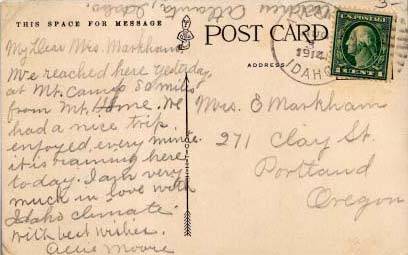 Atlanta, Idaho
THIS SPACE FOR MESSAGE
POST CARD
ADDRESS
1914
IDAHO
U.S. POSTAGE
1 CENT 1
My Dear Mrs. Markham
We reached here yesterday
at Mt. Camp 80 miles
from Mt. Home. We
had a nice trip,
enjoyed every minute.
it is raining here
today. I am very
much in love with
Idaho climate.
With best wishes.
Allie Moore
Mrs. E Markham
271 Clay St.
Portland
Oregon